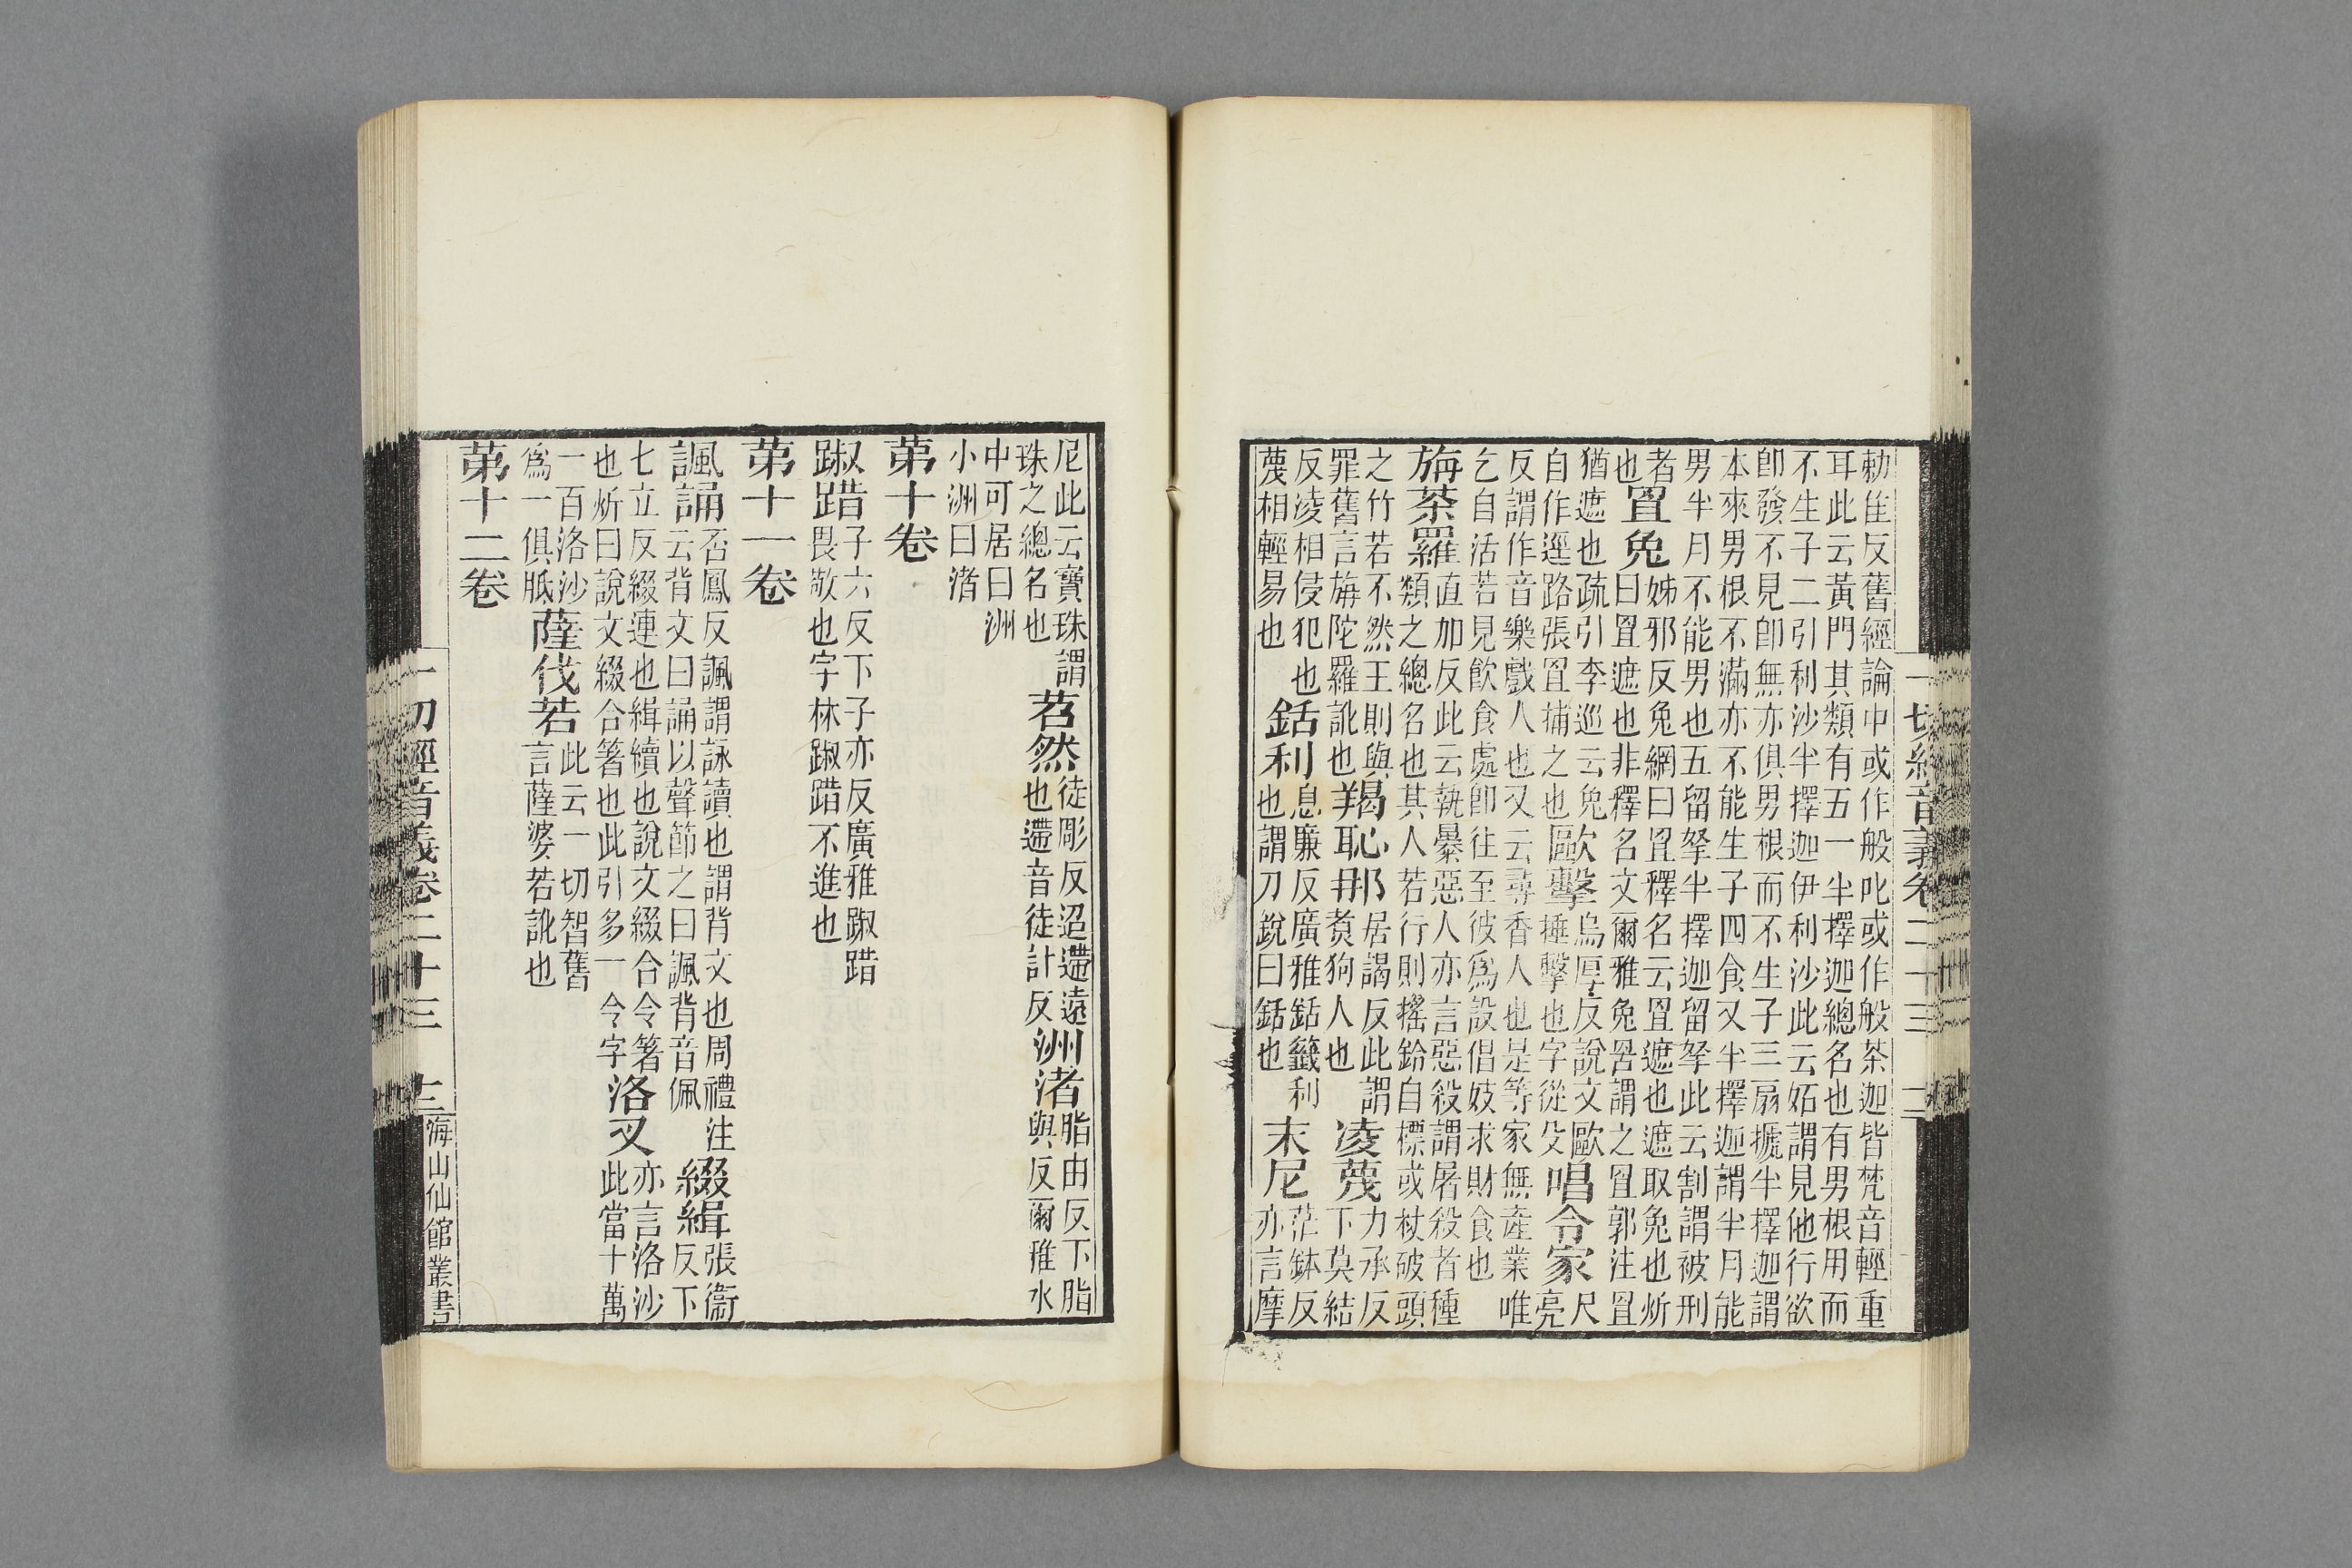 勅隹反舊經論中或作般吒或作般荼迦皆梵音輕重
耳此云黃門其類有五一半擇迦總名也有男根用而
不生子二引利沙半擇迦伊利沙此云妬謂見他行欲
卽發不見卽無亦俱男根而不生子三扇搋半擇迦謂
本來男根不滿亦不能生子四食又半擇迦謂半月能
男半月不能男也五留拏半擇迦留拏此云割謂被刑
者也罝兔姊邪反兔網曰罝釋名云罝遮也遮取兔也炘曰罝遮也非釋名文爾雅兔罟謂之罝郭注罝
猶遮也疏引李巡云兔自作逕路張罝捕之也歐擊烏厚反說文歐捶擊也字從殳唱令家尺亮
反謂作音樂戲人也又云尋香人也是等家無產業唯
乞自活若見飮食處卽往至彼爲設倡妓求財食也
旃荼羅直加反此云執暴惡人亦言惡殺謂屠殺者種類之總名也其人若行則搖鈴自標或杖破頭
之竹若不然王則與罪舊言旃陀羅訛也羯恥那居謁反此謂煑狗人也凌蔑力承反下莫結
反凌相侵犯也蔑相輕易也銛利息廉反廣雅銛籤利也謂刀銳曰銛也末尼茫鉢反亦言摩
尼此云寶珠謂珠之總名也苕然徒彫反迢遰遠也遰音徒計反洲渚脂由反下脂與反爾雅水
中可居曰洲小洲曰渚
第十卷
踧踖子六反下子亦反廣雅踧踖畏敬也字林踧踖不進也
第十一卷
諷誦否鳳反諷謂詠讀也謂背文也周禮注云背文曰誦以聲節之曰諷背音佩綴緝張衞反下
七立反綴連也緝續也說文綴合令著也炘曰說文綴合箸也此引多一令字洛叉亦言洛沙此當十萬
一百洛沙爲一俱胝薩伐若此云一切智舊言薩婆若訛也
第十二卷
一切經音義卷二十三
海山仙館叢書